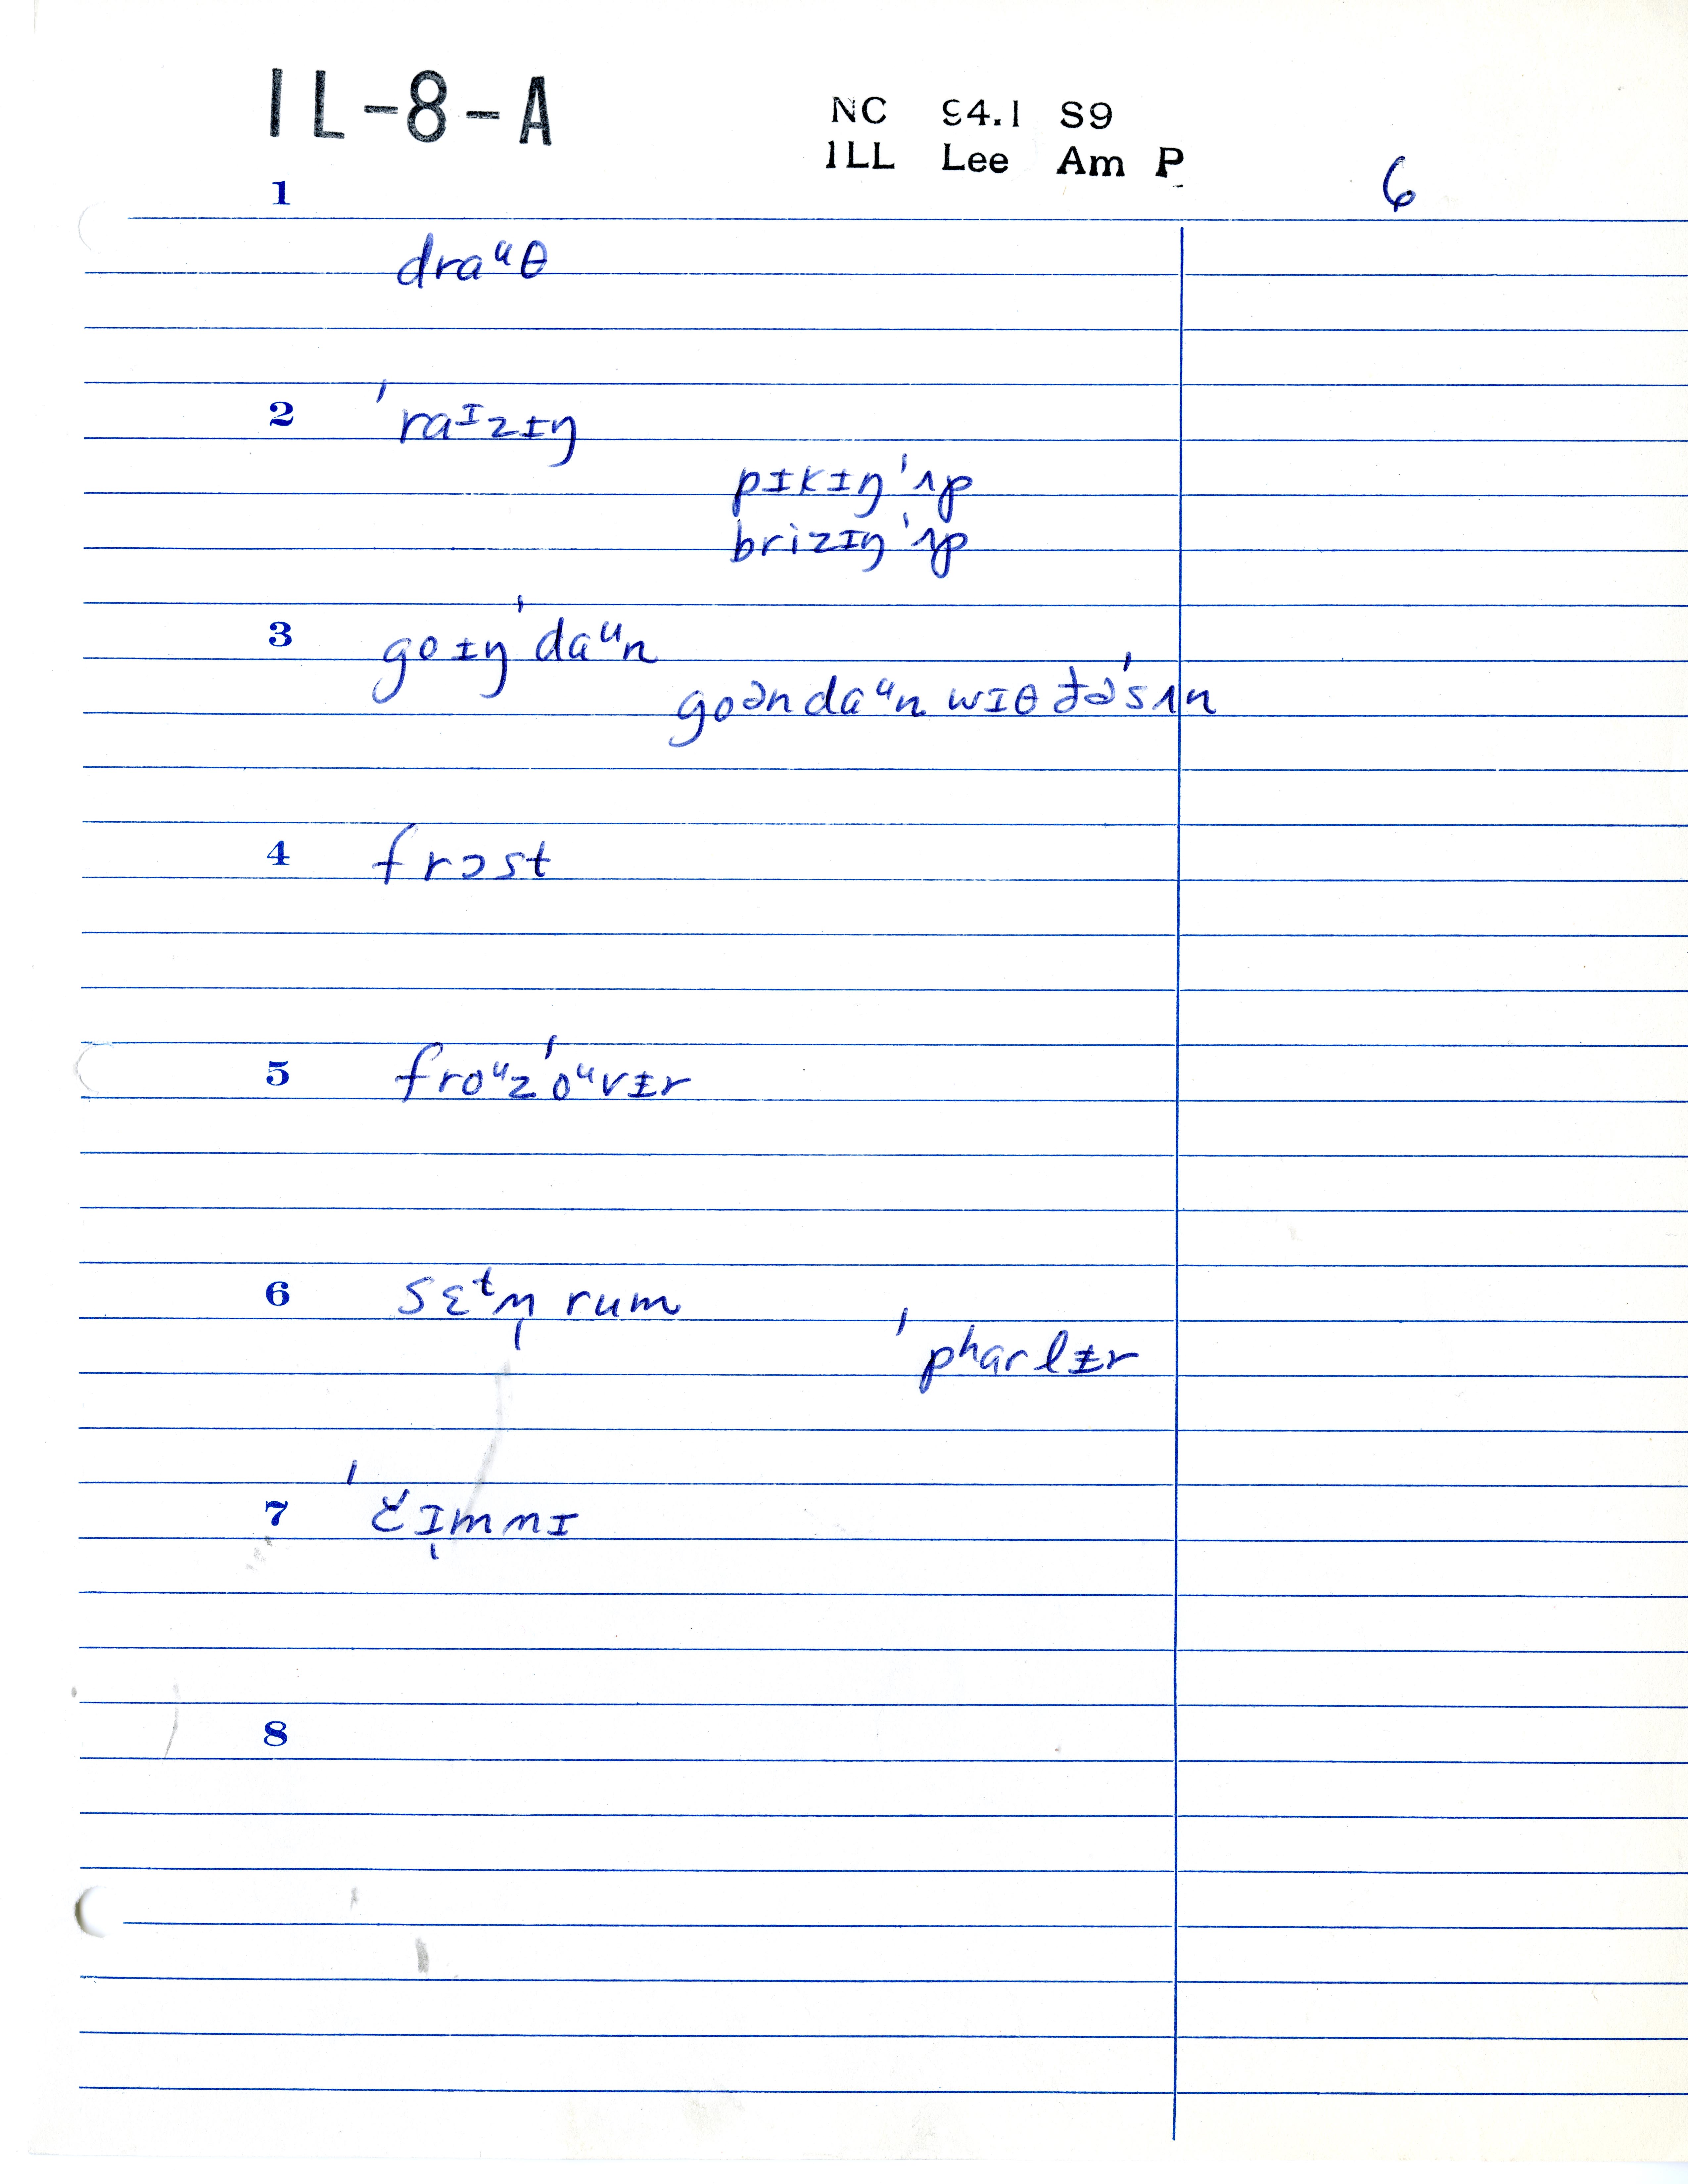 IL-8-A
NC 94.1 S9
ILL Lee Am P
6
1
draᵘθ
2 ˈraᶦzɪŋ
pɪkɪŋˈʌp
brizɪŋˈʌp
3 goɪŋˈdaᵘn
goəndaᵘn wɪθ đəˈsʌn
4 frɔst
5 froᵘzˈoᵘvɨr
6 sɛᵗn̩ rum
ˈpʰarlɨr
7 ˈčɪ̩mnɪ
8